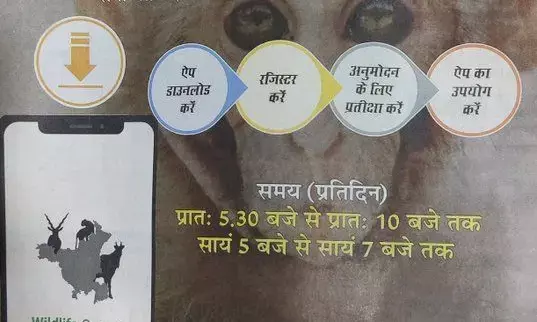 ऐप
डाउनलोड
करें
रजिस्टर
करें
अनुमोदन
के लिए
प्रतीक्षा करें
ऐप का
उपयोग
करें
समय (प्रतिदिन)
प्रात: 5.30 बजे से प्रात: 10 बजे तक
सायं 5 बजे से सायं 7 बजे तक
Wildlife